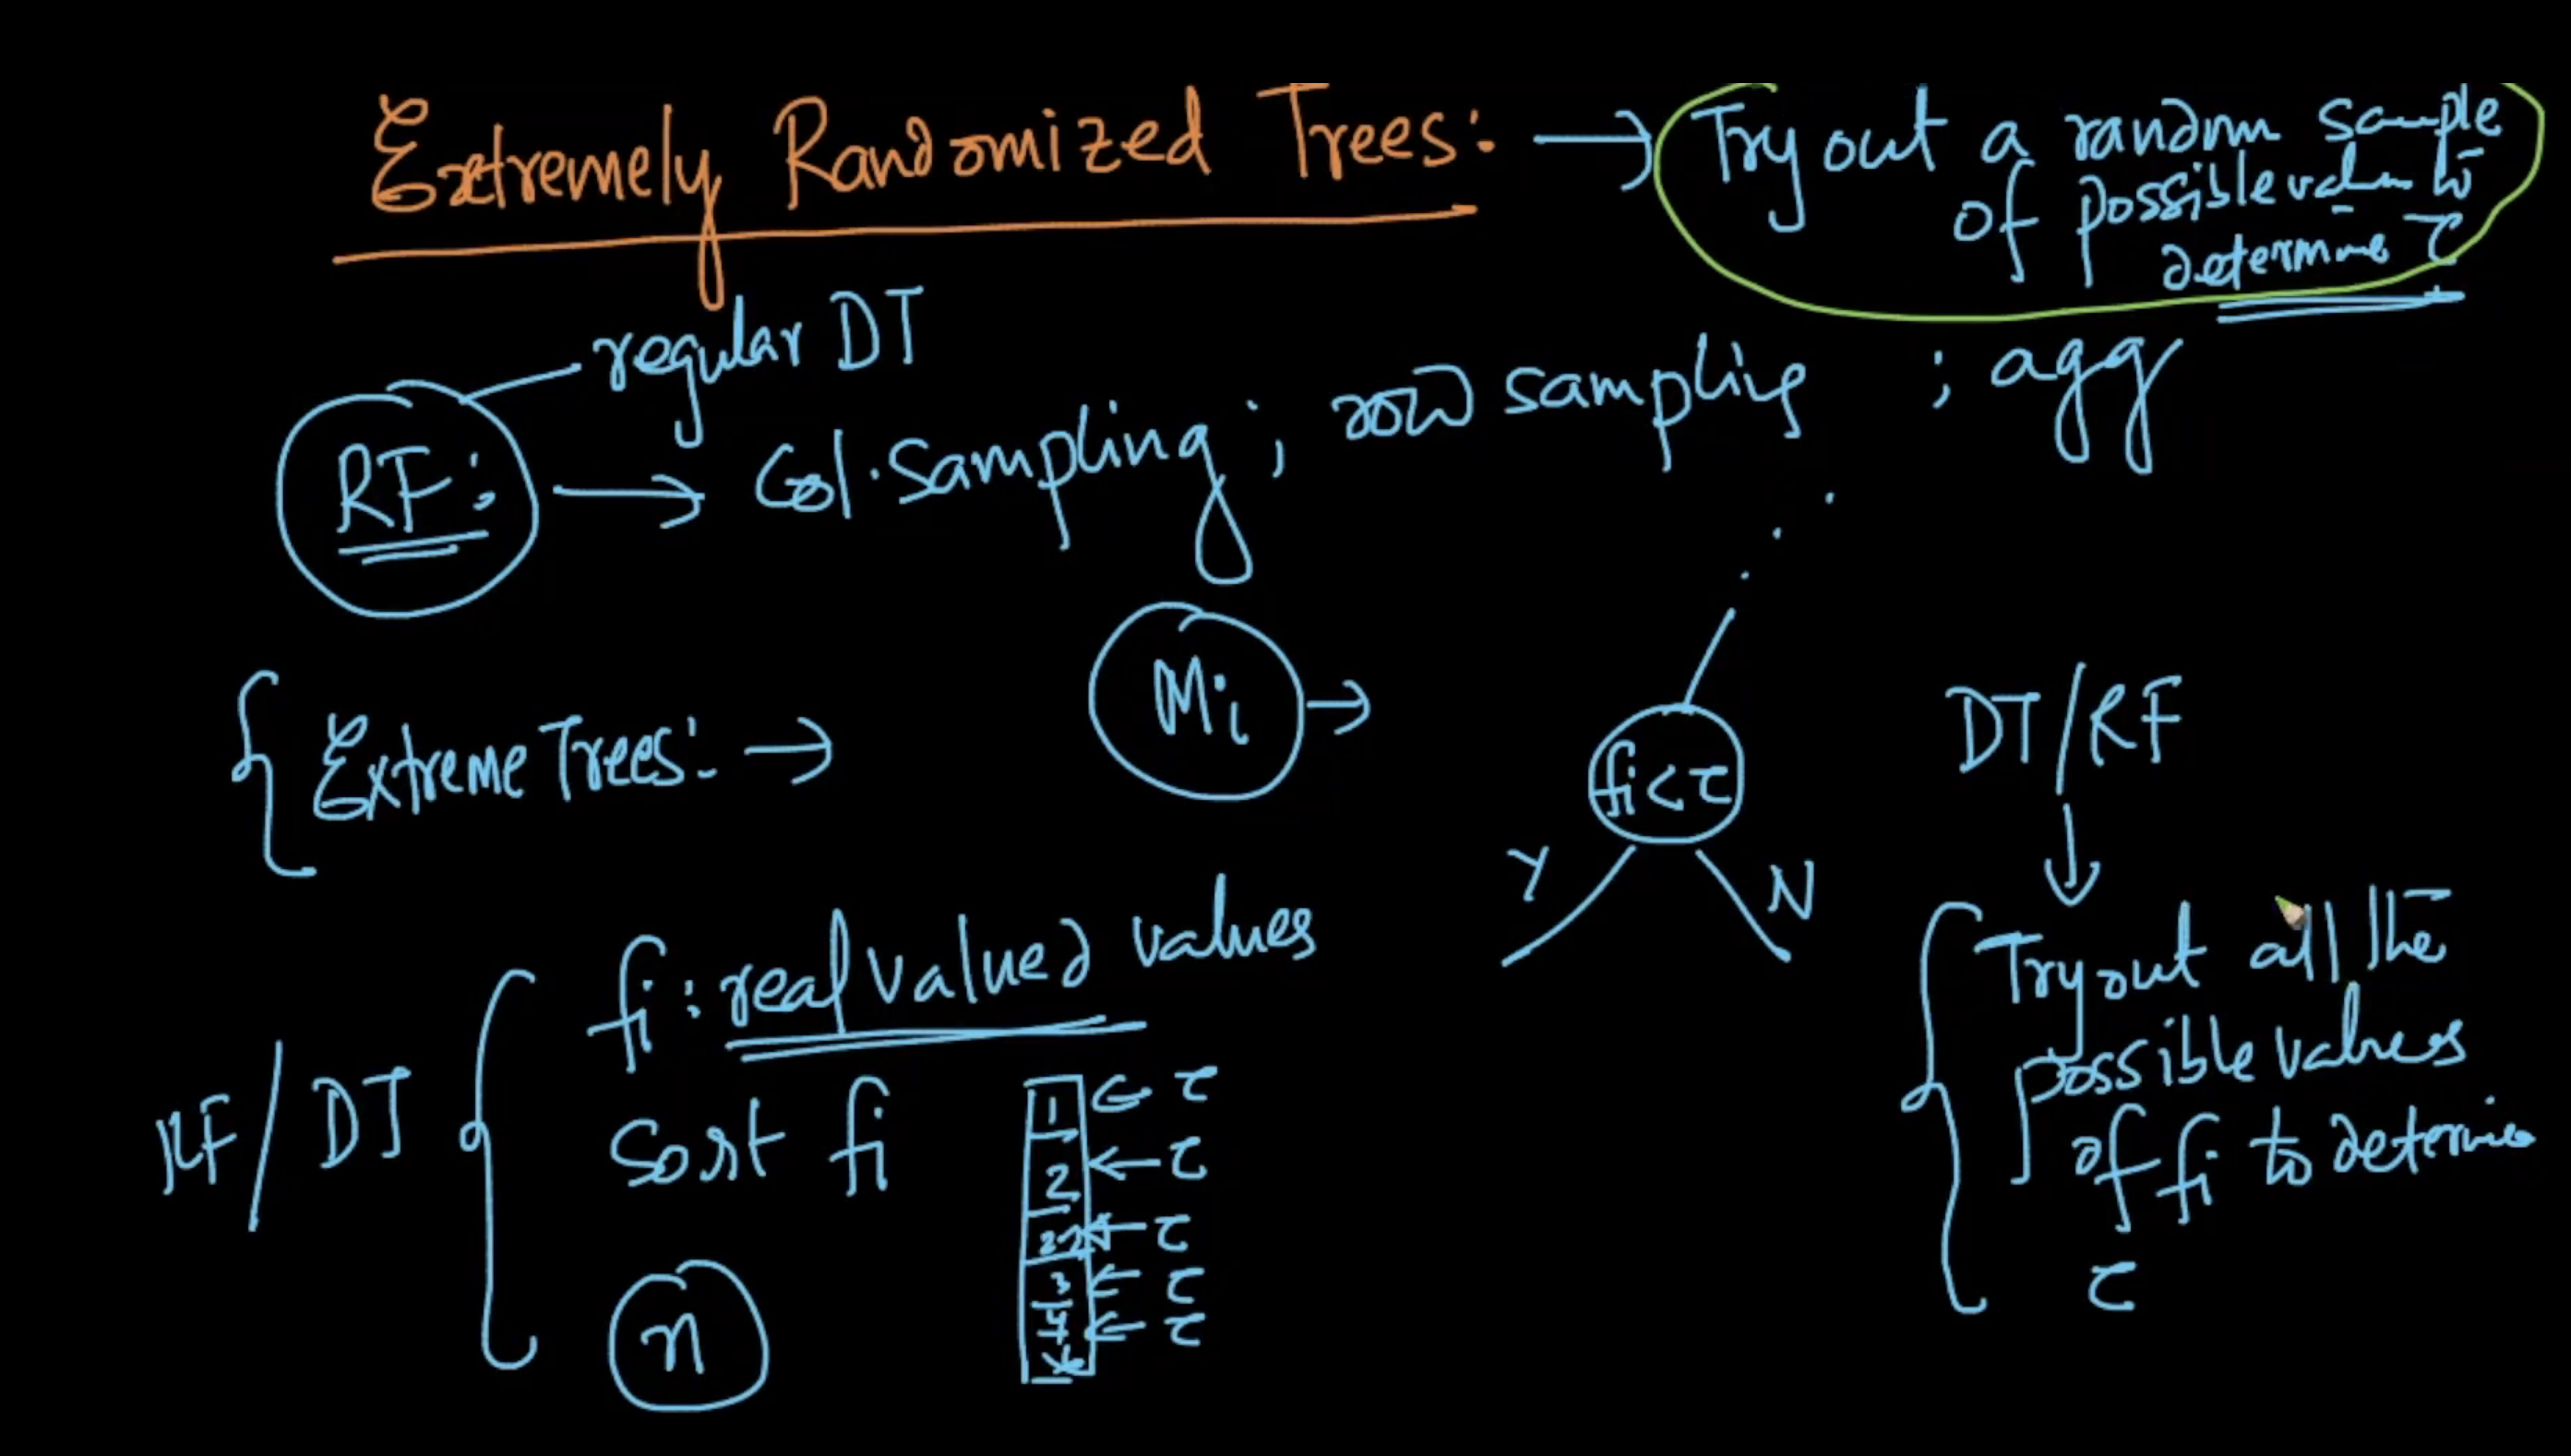 Extremely Randomized Trees: → Try out a random sample
of possible values to
determine τ
regular DT
RF: → Col. Sampling ; row sampling ; agg
Extreme Trees: → Mi →
fi < τ
Y N
DT/RF
Try out all the
possible values
of fi to determine
τ
RF/DT
fi : real valued values
Sort fi
n
1 ← τ
2 ← τ
2.2 ← τ
3 ← τ
4 ← τ